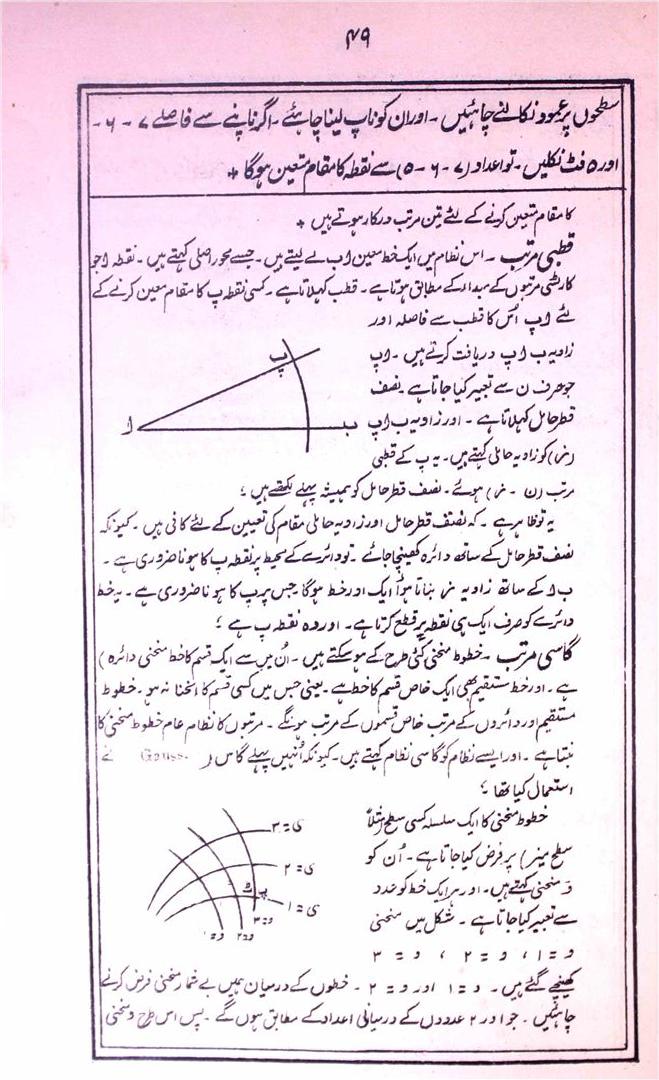 ۴۹
سطحوں پر عمود نکالنے چاہئیں ۔ اور ان کو ناپ لینا چاہئے ۔ اگر ناپنے سے فاصلے ۷ ۔ ۶ ۔
اور ۵ فٹ نکلیں ۔ تو اعداد (۷ ۔ ۶ ۔ ۵) سے نقطہ کا مقام متعین ہوگا +
کا مقام متعین کرنے کے لئے تین مرتب درکار ہوتے ہیں +
قطبی مرتب ۔ اس نظام میں ایک خط معین ا ب لے لیتے ہیں ۔ جسے محور اصلی کہتے ہیں ۔ نقطہ ا جو
کارٹسی مرتبوں کے مبداء کے مطابق ہوتا ہے ۔ قطب کہلاتا ہے ۔ کسی نقطہ پ کا مقام معین کرنے کے
لئے ا پ اس کا قطب سے فاصلہ اور
زاویہ ب ا پ دریافت کرتے ہیں ۔ ا پ
جو حرف ن سے تعبیر کیا جاتا ہے نصف
قطر حامل کہلاتا ہے ۔ اور زاویہ ب ا پ
کو زاویہ حاملی کہتے ہیں ۔ یہ پ کے قطبی
مرتب ہوئے ۔ نصف قطر حامل کو ہمیشہ پہلے لکھتے ہیں ؛
پ
ا
ب
یہ تو ظاہر ہے ۔ کہ نصف قطر حامل اور زاویہ حاملی مقام کی تعیین کے لئے کافی ہیں ۔ کیونکہ
نصف قطر حامل کے ساتھ دائرہ کھینچا جائے ۔ تو دائرے کے محیط پر نقطہ پ کا ہونا ضروری ہے ۔
ب ا کے ساتھ زاویہ بناتا ہوا ایک اور خط ہوگا جس پر پ کا ہونا ضروری ہے ۔ یہ خط
دائرے کو صرف ایک ہی نقطہ پر قطع کرتا ہے ۔ اور وہ نقطہ پ ہے ؛
گاسی مرتب ۔ خطوط منحنی کئی طرح کے ہو سکتے ہیں ۔ ان میں سے ایک قسم کا خط منحنی دائرہ )
ہے ۔ اور خط مستقیم بھی ایک خاص قسم کا خط ہے ۔ یعنی جس میں کسی قسم کا انحنا نہ ہو ۔ خطوط
مستقیم اور دائروں کے مرتب خاص قسموں کے مرتب ہونگے ۔ مرتبوں کا نظام عام خطوط منحنی کا
بنتا ہے ۔ اور ایسے نظام کو گاسی نظام کہتے ہیں ۔ کیونکہ اُنہیں پہلے گاس ( Gauss نے
استعمال کیا تھا ؛
خطوط منحنی کا ایک سلسلہ کسی سطح (مثلاً
سطح میز) پر فرض کیا جاتا ہے ۔ اُن کو
وَ منحنی کہتے ہیں ۔ اور ہر ایک خط کو عدد
سے تعبیر کیا جاتا ہے ۔ شکل میں منحنی
و = ۱ ، و = ۲ ، و = ۳
ی = ۳
ی = ۲
ی = ۱
پ
و = ۳
و = ۲
و = ۱
کھینچے گئے ہیں ۔ و = ۱ اور و = ۲ ۔ خطوں کے درمیان ہمیں بے شمار منحنی فرض کرنے
چاہئیں ۔ جو ا اور ۲ عددوں کے درمیانی اعداد کے مطابق ہوں گے ۔ پس اس طرح و منحنی